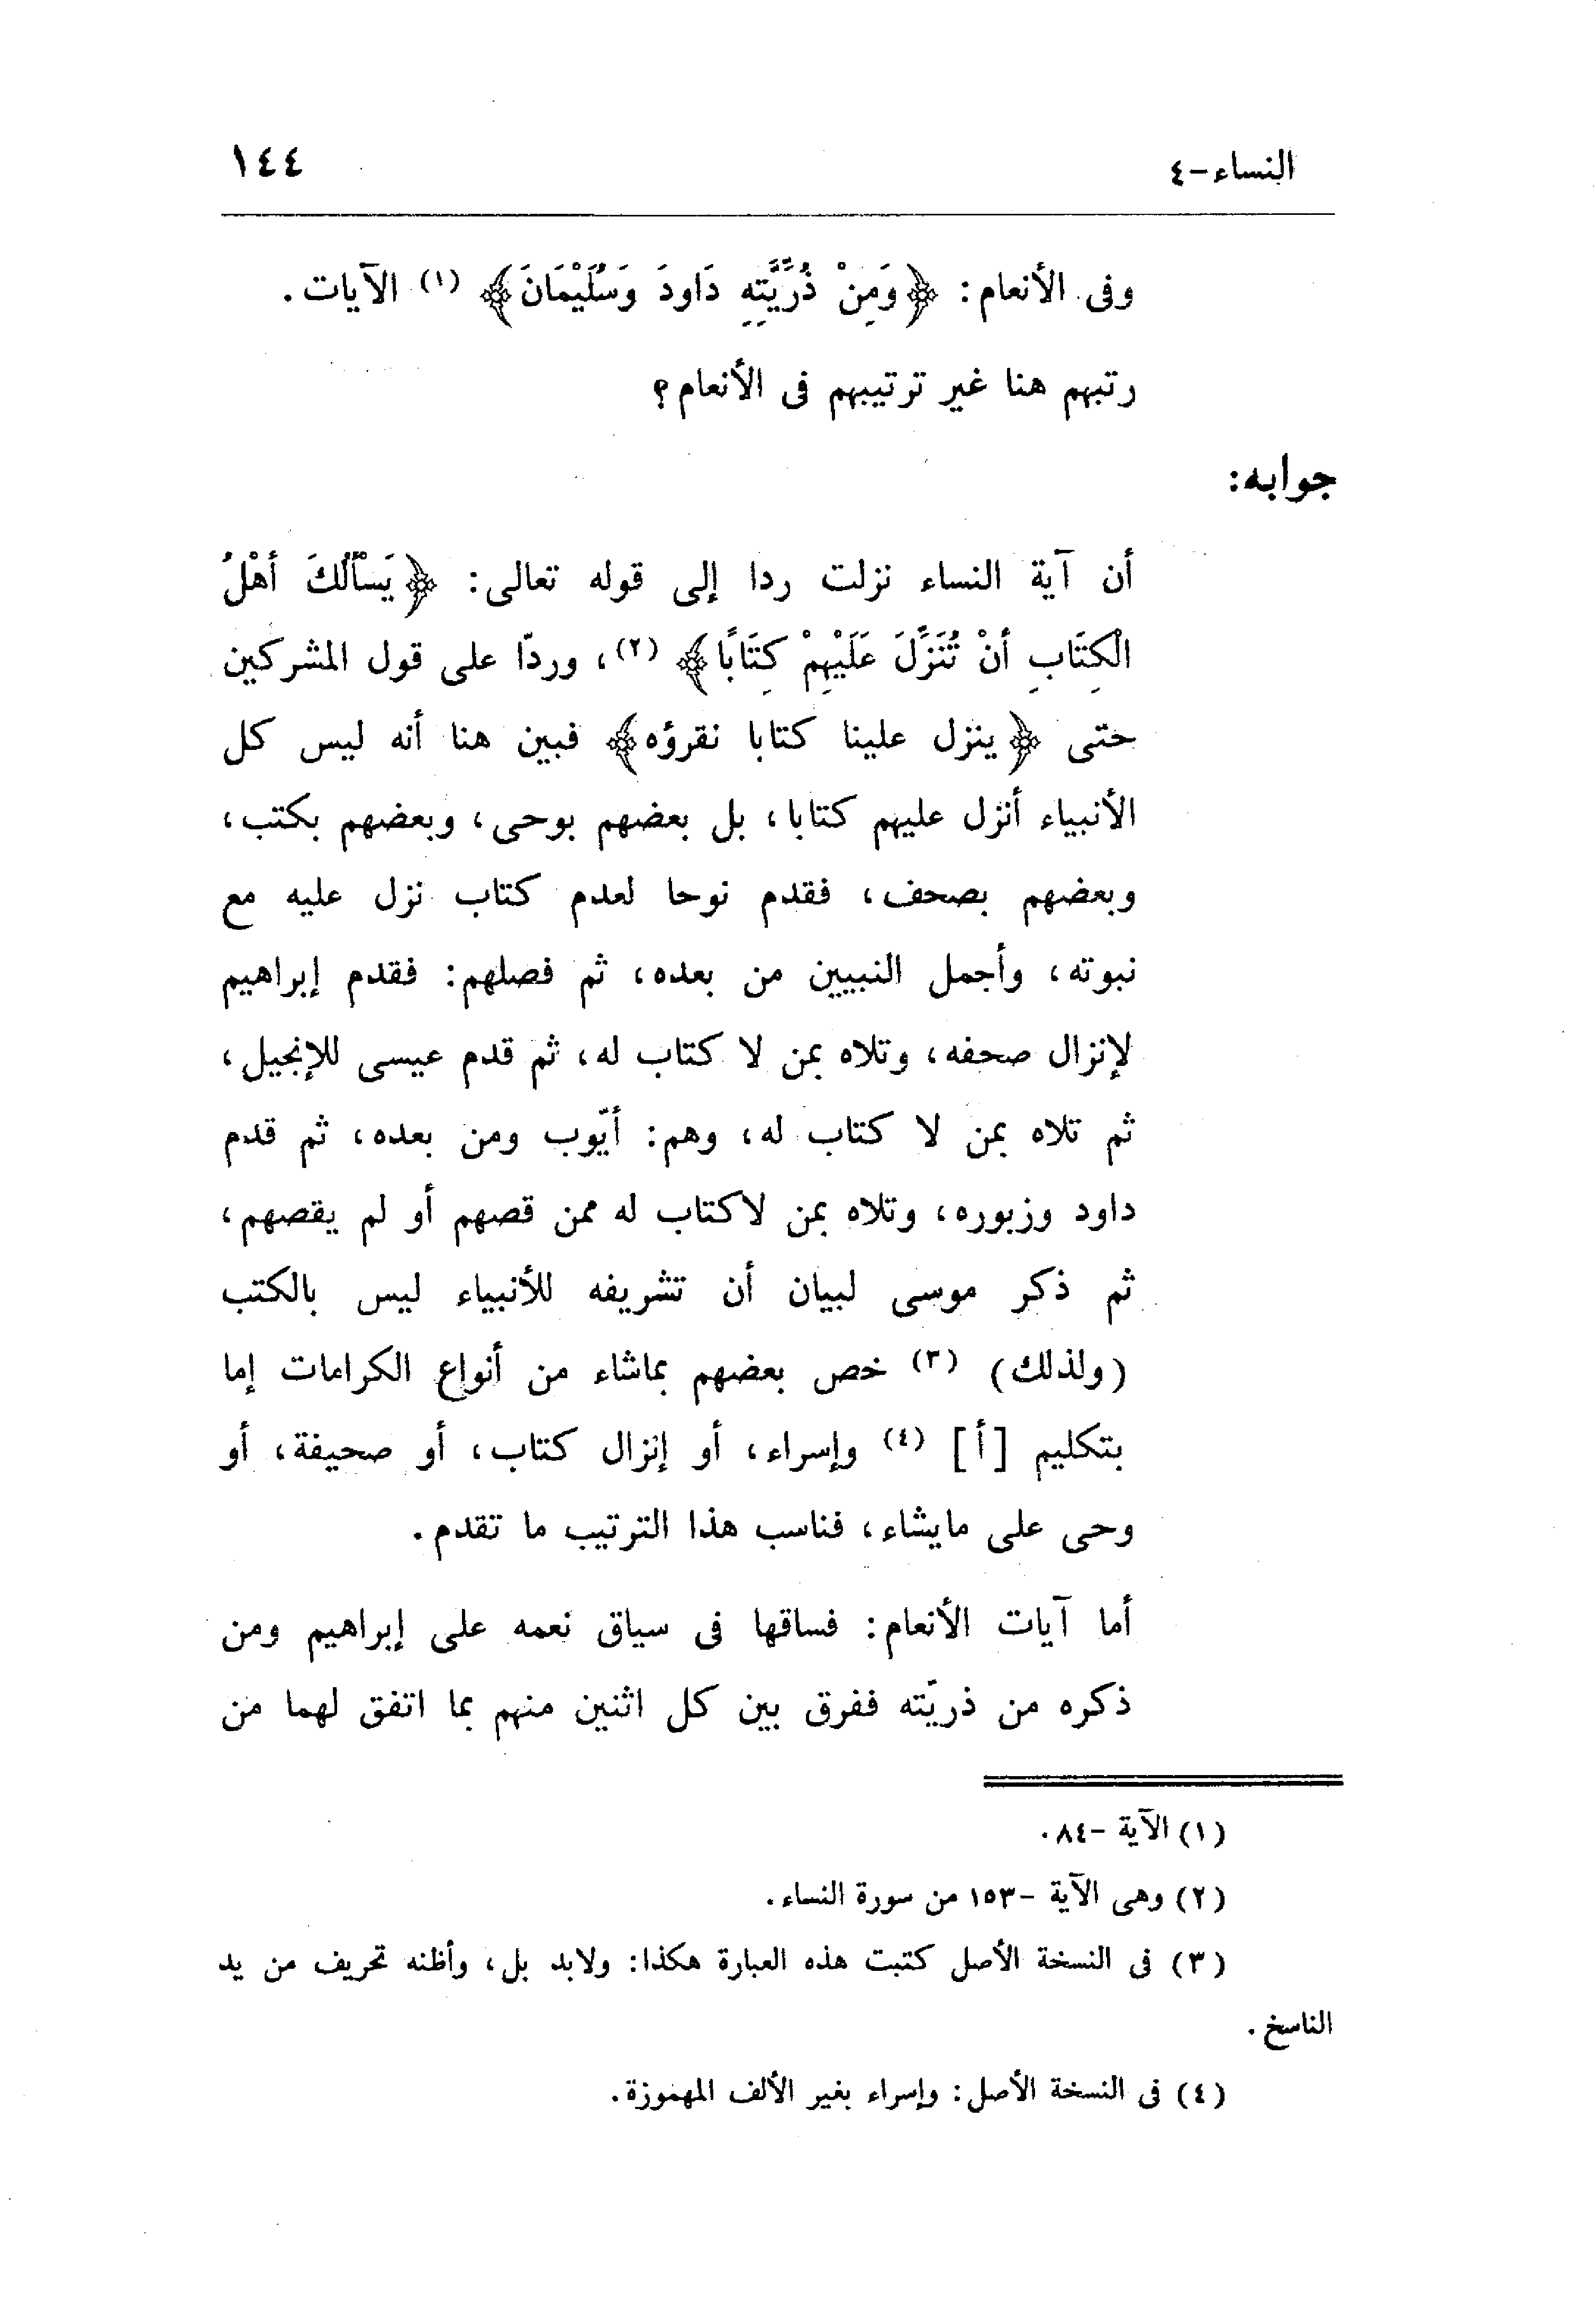 النساء-٤ ١٤٤
وفى الأنعام: ﴿وَمِنْ ذُرِّيَّتِهِ دَاودَ وَسُلَيْمَانَ﴾ (١) الآيات.
رتبهم هنا غير ترتيبهم فى الأنعام؟
جوابه:
أن آية النساء نزلت ردا إلى قوله تعالى: ﴿يَسْأَلُكَ أَهْلُ
الْكِتَابِ أَنْ تُنَزِّلَ عَلَيْهِمْ كِتَابًا﴾ (٢)، وردّا على قول المشركين
حتى ﴿ينزل علينا كتابا نقرؤه﴾ فبين هنا أنه ليس كل
الأنبياء أنزل عليهم كتابا، بل بعضهم بوحى، وبعضهم بكتب،
وبعضهم بصحف، فقدم نوحا لعدم كتاب نزل عليه مع
نبوته، وأجمل النبيين من بعده، ثم فصلهم: فقدم إبراهيم
لإنزال صحفه، وتلاه بمن لا كتاب له، ثم قدم عيسى للإنجيل،
ثم تلاه بمن لا كتاب له، وهم: أيّوب ومن بعده، ثم قدم
داود وزبوره، وتلاه بمن لاكتاب له ممن قصهم أو لم يقصهم،
ثم ذكر موسى لبيان أن تشريفه للأنبياء ليس بالكتب
(ولذلك) (٣) خص بعضهم بماشاء من أنواع الكرامات إما
بتكليم [أ] (٤) وإسراء، أو إنزال كتاب، أو صحيفة، أو
وحى على مايشاء، فناسب هذا الترتيب ما تقدم.
أما آيات الأنعام: فساقها فى سياق نعمه على إبراهيم ومن
ذكره من ذريّته ففرق بين كل اثنين منهم بما اتفق لهما من
(١) الآية -٨٤.
(٢) وهى الآية -١٥٣ من سورة النساء.
(٣) فى النسخة الأصل كتبت هذه العبارة هكذا: ولابد بل، وأظنه تحريف من يد
الناسخ.
(٤) فى النسخة الأصل: وإسراء بغير الألف المهموزة.